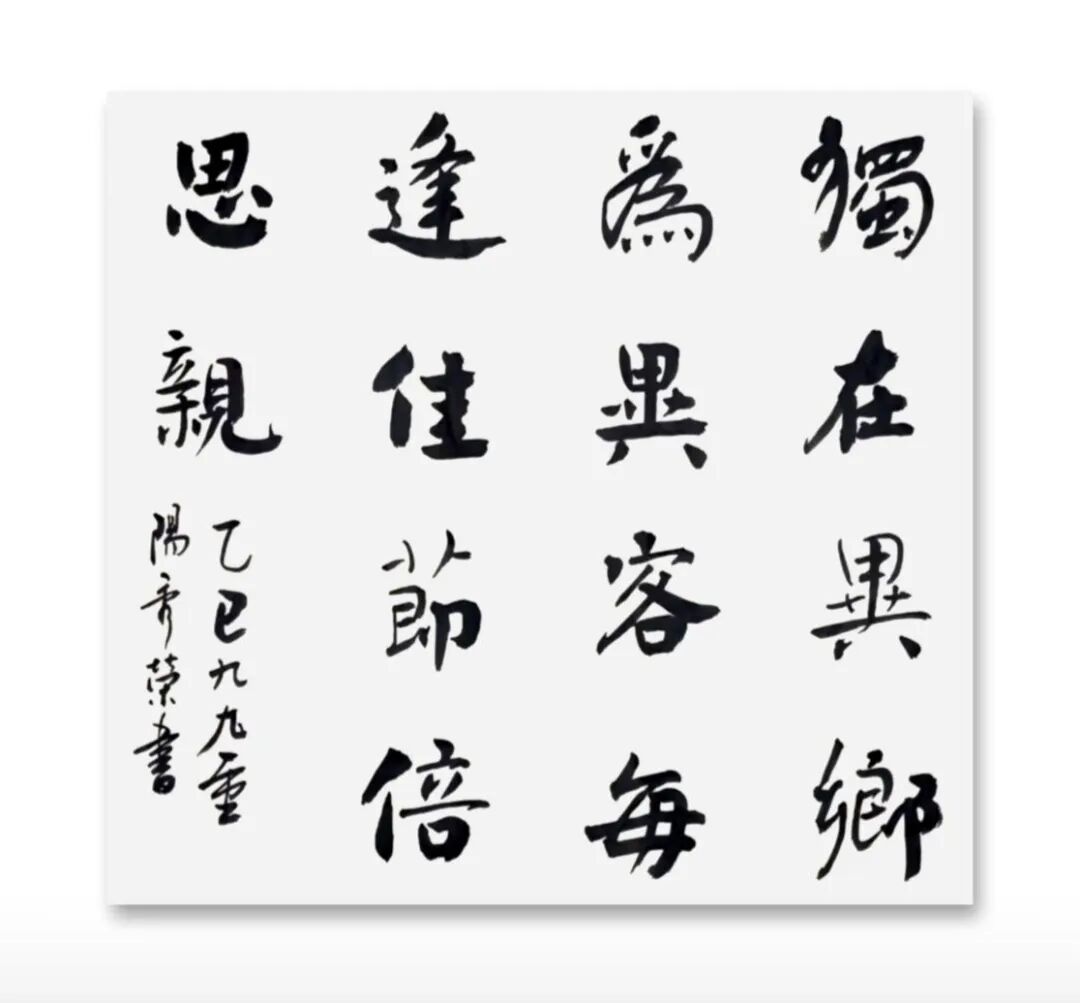 獨在異鄉
為異客每
逢佳節倍
思親
乙巳九九重
陽齊榮書